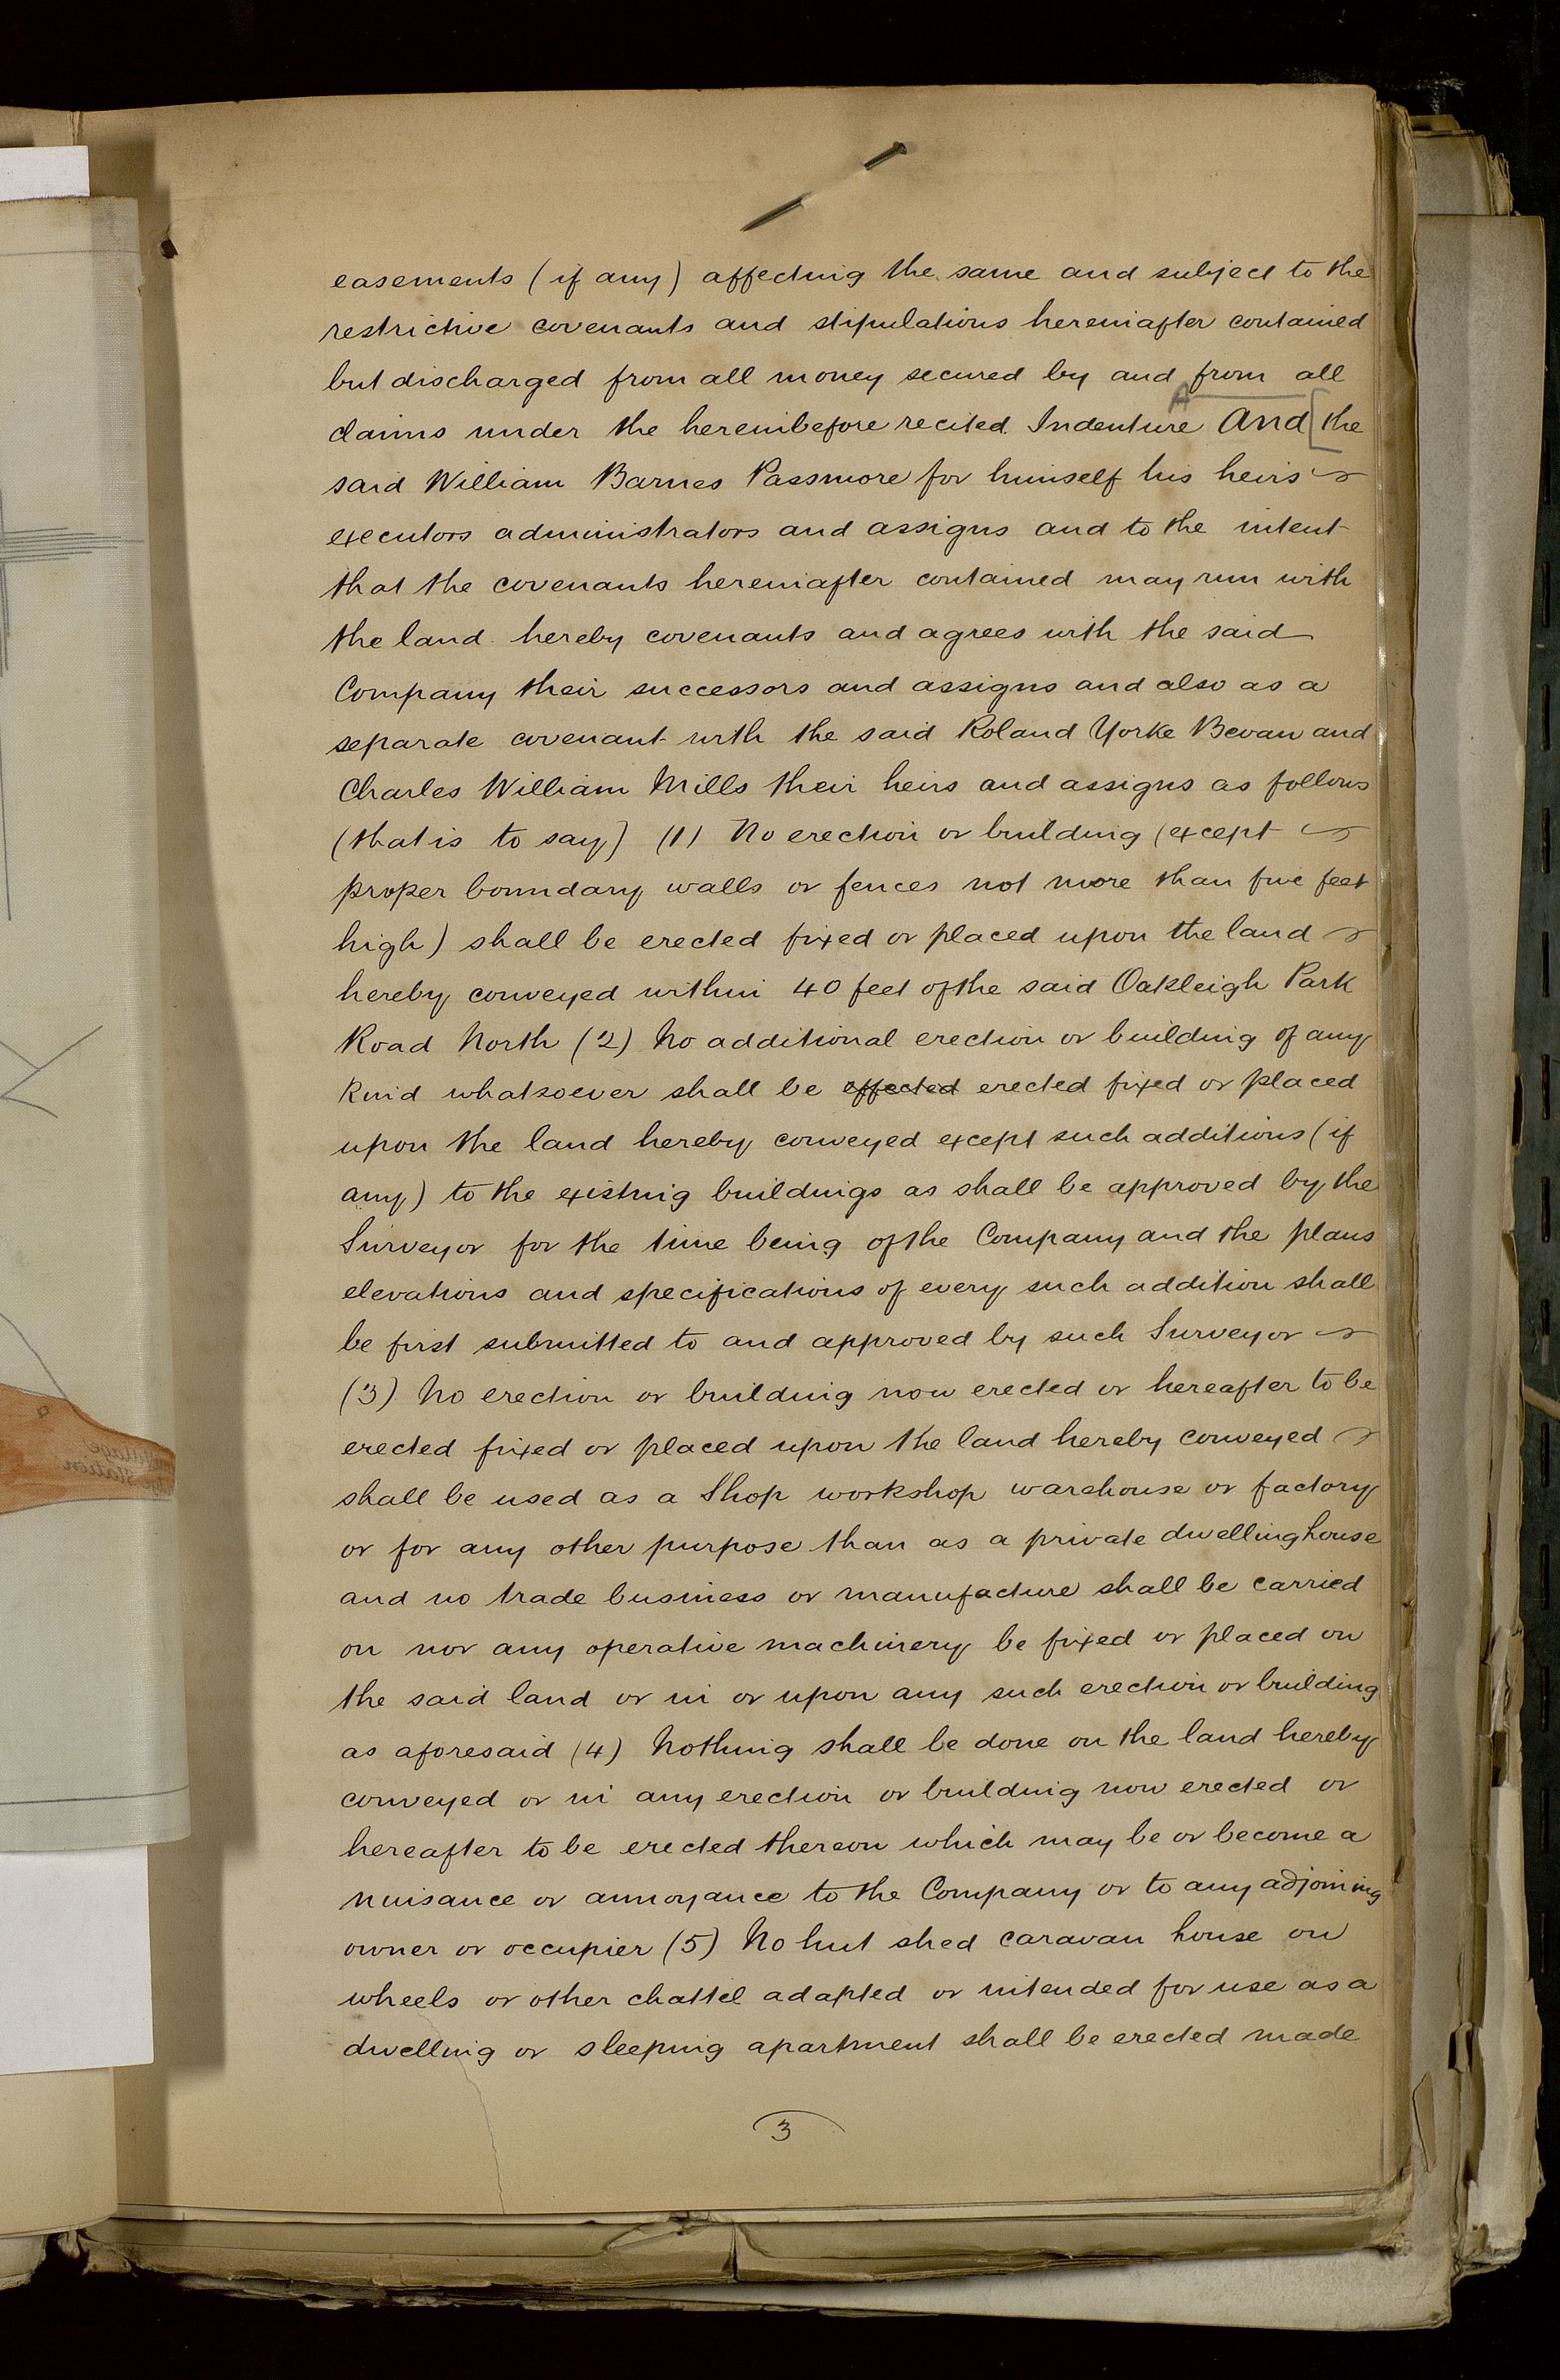 easements (if any) affecting the same and subject to the
restrictive covenants and stipulations hereinafter contained
but discharged from all money secured by and from all
A
claims under the hereinbefore recited Indenture And [the
said William Barnes Passmore for himself his heirs
executors administrators and assigns and to the intent
that the covenants hereinafter contained may run with
the land hereby covenants and agrees with the said
Company their successors and assigns and also as a
separate covenant with the said Roland Yorke Bevan and
Charles William Mills their heirs and assigns as follows
(that is to say) (1) No erection or building (except
proper boundary walls or fences not more than five feet
high) shall be erected fixed or placed upon the land
hereby conveyed within 40 feet of the said Oakleigh Park
Road North (2) No additional erection or building of any
kind whatsoever shall be effected erected fixed or placed
upon the land hereby conveyed except such additions (if
any) to the existing buildings as shall be approved by the
Surveyor for the time being of the Company and the plans
elevations and specifications of every such addition shall
be first submitted to and approved by such Surveyor
(3) No erection or building now erected or hereafter to be
erected fixed or placed upon the land hereby conveyed
shall be used as a Shop workshop warehouse or factory
or for any other purpose than as a private dwellinghouse
and no trade business or manufacture shall be carried
on nor any operative machinery be fixed or placed on
the said land or in or upon any such erection or building
as aforesaid (4) Nothing shall be done on the land hereby
conveyed or in any erection or building now erected or
hereafter to be erected thereon which may be or become a
nuisance or annoyance to the Company or to any adjoining
owner or occupier (5) No hut shed caravan house on
wheels or other chattel adapted or intended for use as a
dwelling or sleeping apartment shall be erected made
3